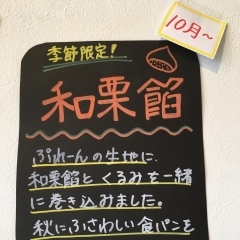 10月〜
季節限定!
和栗餡
ぷれーんの生地に
和栗餡とくるみを一緒
に巻き込みました。
秋にふさわしい食パンを